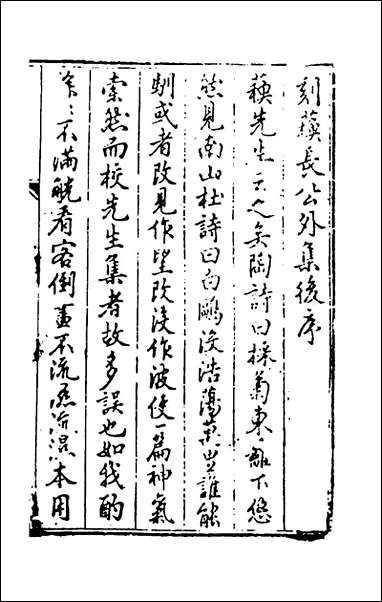 刻蘓長公外集後序
蘓先生言之矣陶詩曰採菊東籬下悠
然見南山杜詩曰白鷗没浩蕩萬里誰能
馴或者改見作望改没作波使一篇神氣
索然而校先生集者故多誤也如我酌
不滿觥看客倒盡不流本用